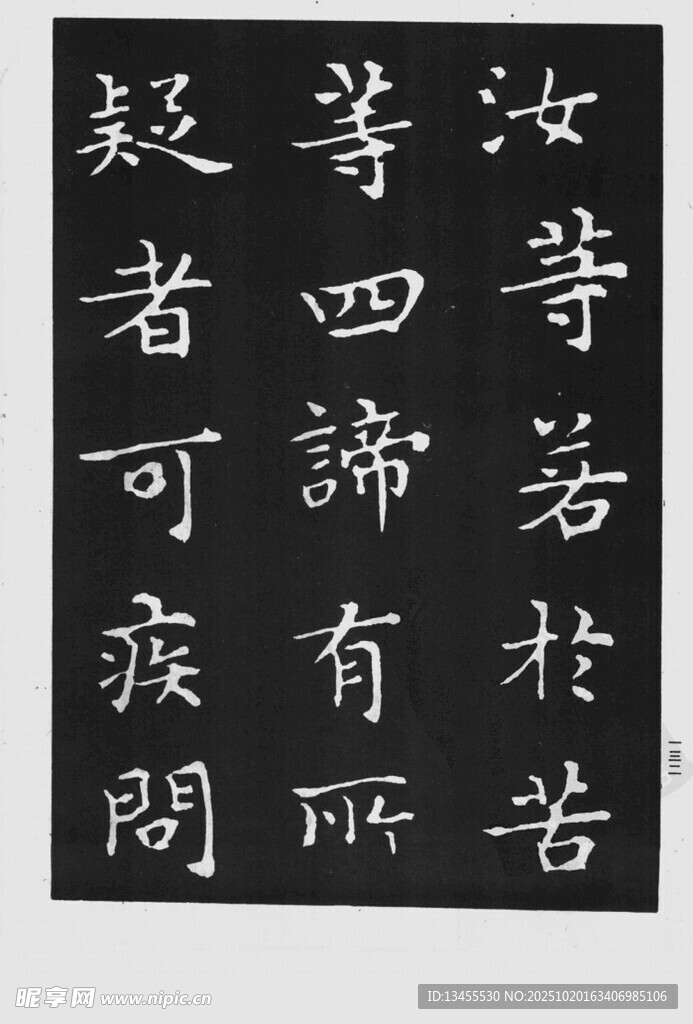 汝等若於苦
等四諦有所
疑者可疾問
三三
昵享网 www.nipic.cn
ID:13455530 NO:20251020163406985106